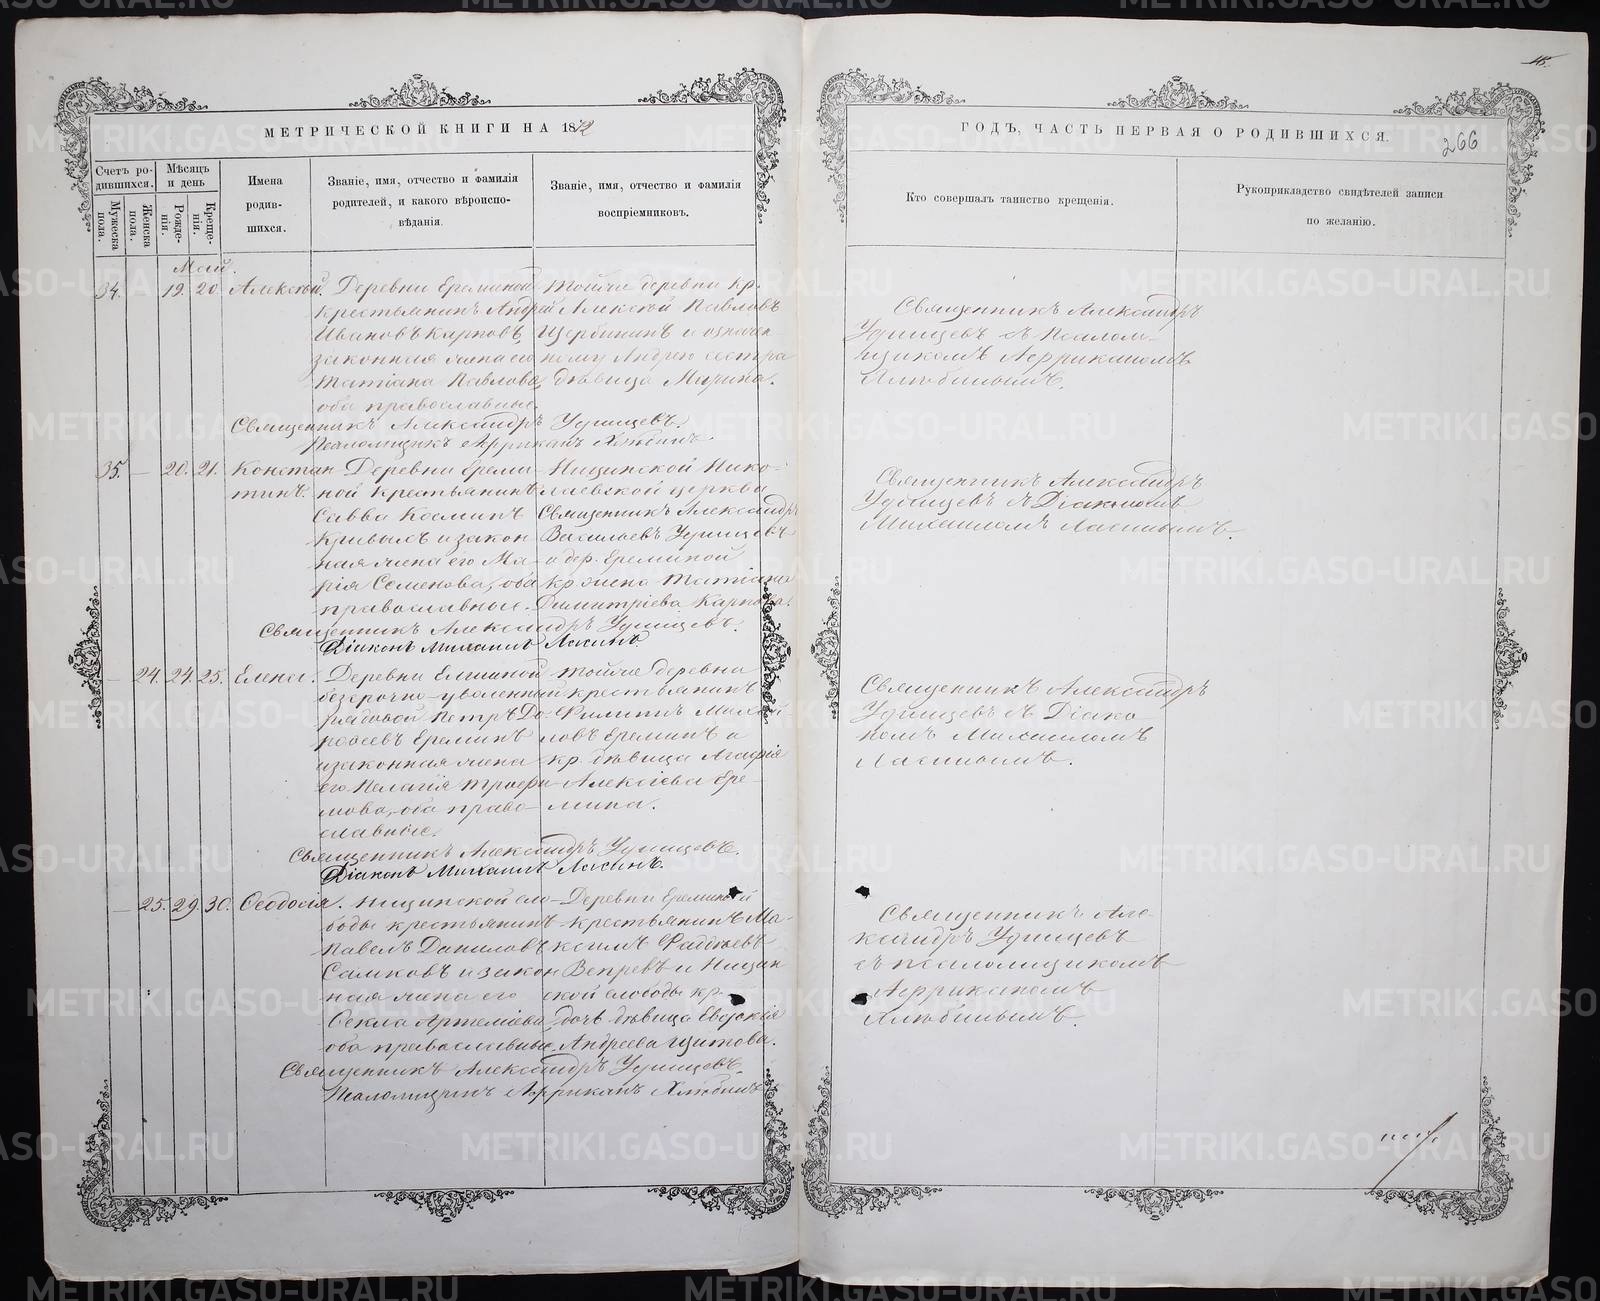 МЕТРИЧЕСКОЙ КНИГИ НА 1872
Счетъ ро-
дившихся.
Мужеска
пола.
Женска
пола.
Мѣсяцъ
и день
Рожде-
нія.
Креще-
нія.
Имена
родив-
шихся.
Званіе, имя, отчество и фамилія
родителей, и какого вѣроиспо-
вѣданія.
Званіе, имя, отчество и фамилія
воспріемниковъ.
Май.
34. 19. 20. Алексѣй.
Деревни Ереминой
крестьянинъ Андрей
Ивановъ Карповъ,
законная жена его
Татіана Павлова,
оба православные.
Тойже деревни кр.
Алексѣй Павловъ
Щербининъ и означен
ному Андрею сестра
дѣвица Марина.
Священникъ Александръ Удинцевъ.
Псаломщикъ Африканъ Хлюбинъ.
35. — 20. 21. Констан
тинъ.
Деревни Ереми-
ной крестьянинъ
Савва Косминъ
Кривыхъ и закон
ная жена его Ма-
рія Семенова, оба
православные.
Ницинской Нико-
лаевской церкви
Священникъ Александръ
Васильевъ Удинцевъ
и дер. Ереминой
кр. жена Татіана
Димитріева Карпова.
Священникъ Александръ Удинцевъ.
Діаконъ Михаилъ Ласинъ.
— 24. 24. 25. Елена.
Деревни
безсрочно-уволенный
рядовой Петръ До-
рофеевъ Ереминъ
и законная жена
его Пелагія Трофи-
мова, оба право-
славные.
Тойже деревни
крестьянинъ
Филиппъ Михай-
ловъ Ереминъ и
кр. дѣвица Агафія
Алексіева Ере-
мина.
Священникъ Александръ Удинцевъ.
Діаконъ Михаилъ Ласинъ.
— 25. 29. 30. Ѳеодосія.
Ницинской сло-
боды крестьянинъ
Павелъ Даниловъ
Самковъ и закон
ная жена его
Ѳекла Артеміева,
оба православные.
Деревни Ереминой
крестьянинъ Ма-
ксимъ Фаддѣевъ
Вепревъ и Ницин
ской слободы кр.
дочь дѣвица Евдокія
Андреева Щитова.
Священникъ Александръ Удинцевъ.
Псаломщикъ Африканъ Хлюбинъ
45.
ГОДЪ, ЧАСТЬ ПЕРВАЯ О РОДИВШИХСЯ.
266
Кто совершалъ таинство крещенія.
Рукоприкладство свидѣтелей записи
по желанію.
Священникъ Александръ
Удинцевъ съ Псалом-
щикомъ Африканомъ
Хлюбинымъ.
Священникъ Александръ
Удинцевъ съ Діакономъ
Михаиломъ Ласинымъ.
Священникъ Александръ
Удинцевъ съ Діако
номъ Михаиломъ
Ласинымъ.
Священникъ Але-
ксандръ Удинцевъ
съ псаломщикомъ
Африканомъ
Хлюбинымъ.
METRIKI.GASO-URAL.RU